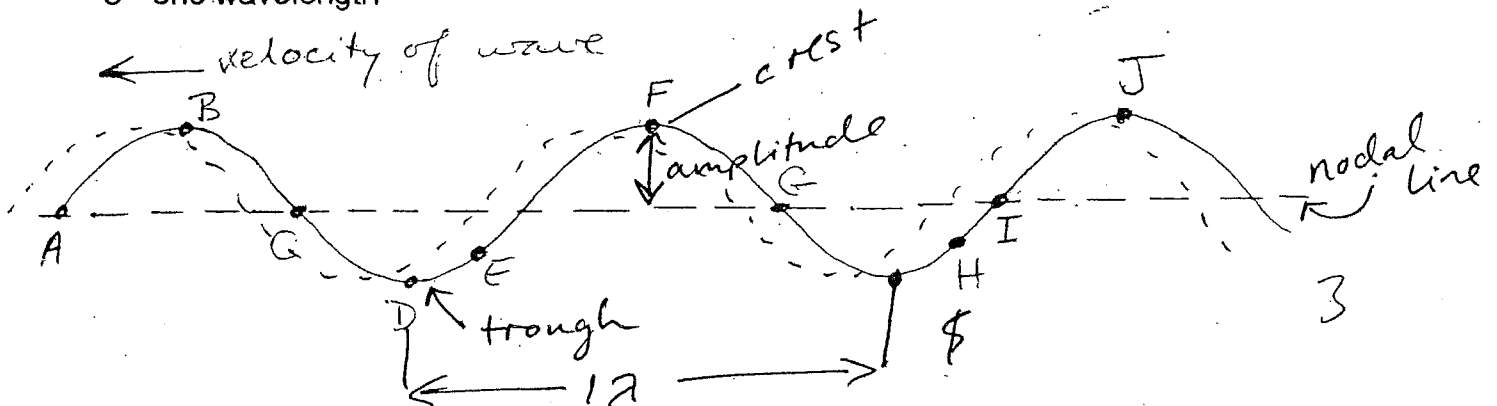 one wavelength
velocity of wave
crest
B
F
J
amplitude
nodal
line
A
G
G
I
E
H
D
trough
$
3
1λ